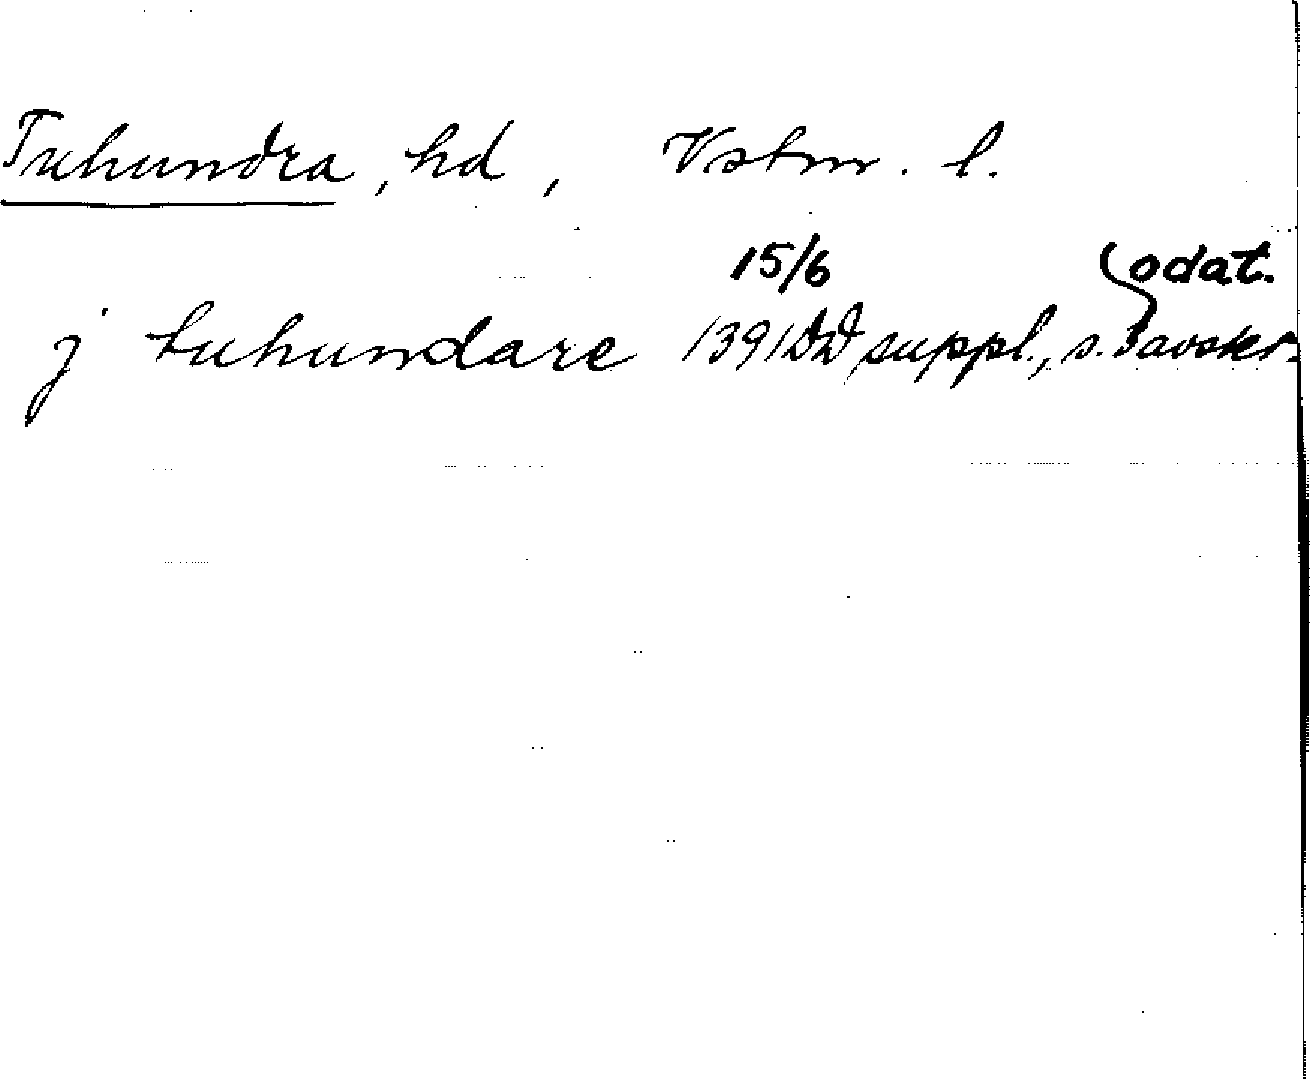 Tuhundra, hd, Vstm. l.
15/6 odat.
j tuhundare 1391 DD suppl., s. 3 avskr.